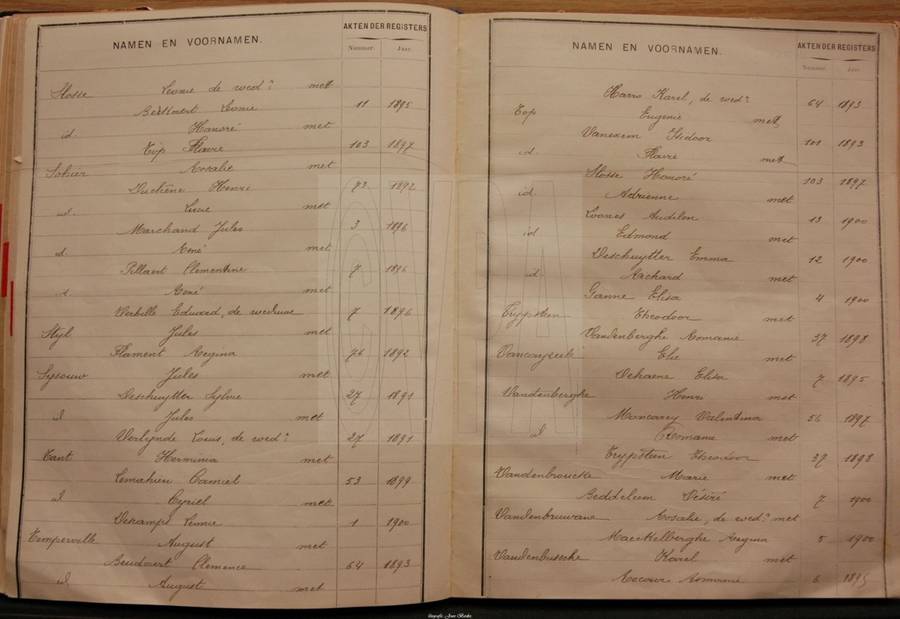 NAMEN EN VOORNAMEN.
AKTEN DER REGISTERS
Nummer. Jaar.
Slosse Leonie de wedᵉ met
Leonie 11 1895
id Honoré met
Top Flavie 103 1897
Sohier Rosalie met
Duchêne Henri 72 1892
id. Lucie met
Marchand Jules 3 1896
id. René met
Pillaert Clementine 7 1896
id. René met
Verbelle Edward, de weduwe 7 1896
Styl Jules met
Flament Regina 76 1892
Syssouw Jules met
Deschuytter Sylvie 27 1891
id Jules met
Verlynde Louis, de wedᵉ 27 1891
Tant Herminia met
Lemahieu Camiel 53 1899
id Cyriel met
Dechamps Leonie 1 1900
Temperville August met
Clemence 64 1893
id August met
NAMEN EN VOORNAMEN.
AKTEN DER REGISTERS
Nummer. Jaar.
Karel, de wedᵉ 64 1893
Top Eugenie met
Vanexem Isidoor 101 1893
id. Flavie met
Slosse Honoré 103 1897
id Adrienne met
Loones Audilon 13 1900
id Edmond met
Deschuytter Emma 12 1900
id Richard met
Ganne Elisa 4 1900
Trypsteen Theodoor met
Vandenberghe Romanie 37 1898
Elie met
Dehaene Elisa 7 1895
Vandenberghe Henri met
Moncarey Valentina 56 1897
id Romanie met
Trypsteen Theodoor 37 1898
Vandenbroucke Marie met
Geddelem Désiré 7 1900
Vandenbruwane Rosalie, de wedᵉ met
Maeckelberghe Regina 5 1900
Vandenbussche Karel met
Romanie 6 1895